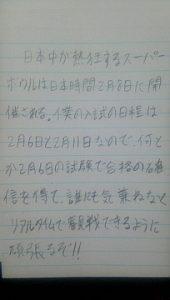 日本中が熱狂するスーパー
ボウルは日本時間2月8日に開
催される。僕の入試の日程は
2月6日と2月11日なので、何と
か2月6日の試験で合格の確
信を得て、誰にも気兼ねなく
リアルタイムで観戦できるように
頑張るぞ!!